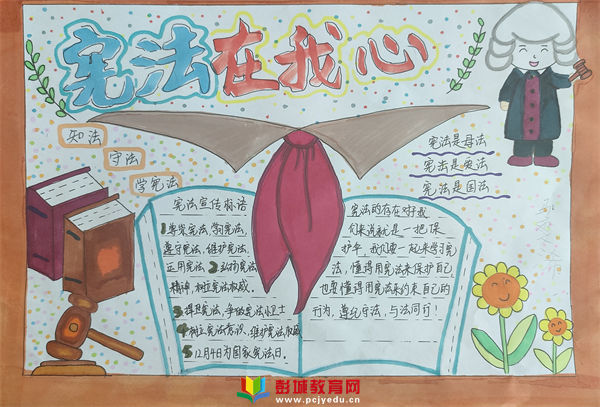 宪法在我心
知法
守法
学宪法
宪法是母法
宪法是国法
宪法宣传标语
1尊崇宪法,学习宪法,
遵守宪法,维护宪法,
运用宪法。2弘扬宪法
精神,树立宪法权威。
3捍卫宪法,争做宪法小卫士
4树立宪法意识,维护宪法权威
5 12月4日为国家宪法日。
宪法的存在对于我
们来说就是一把保
护伞,我们要一起来学习宪
法,懂得用宪法来保护自己,
也要懂得用宪法来约束自己的
行为,遵纪守法,与法同行!
彭城教育网
www.pcjyedu.cn